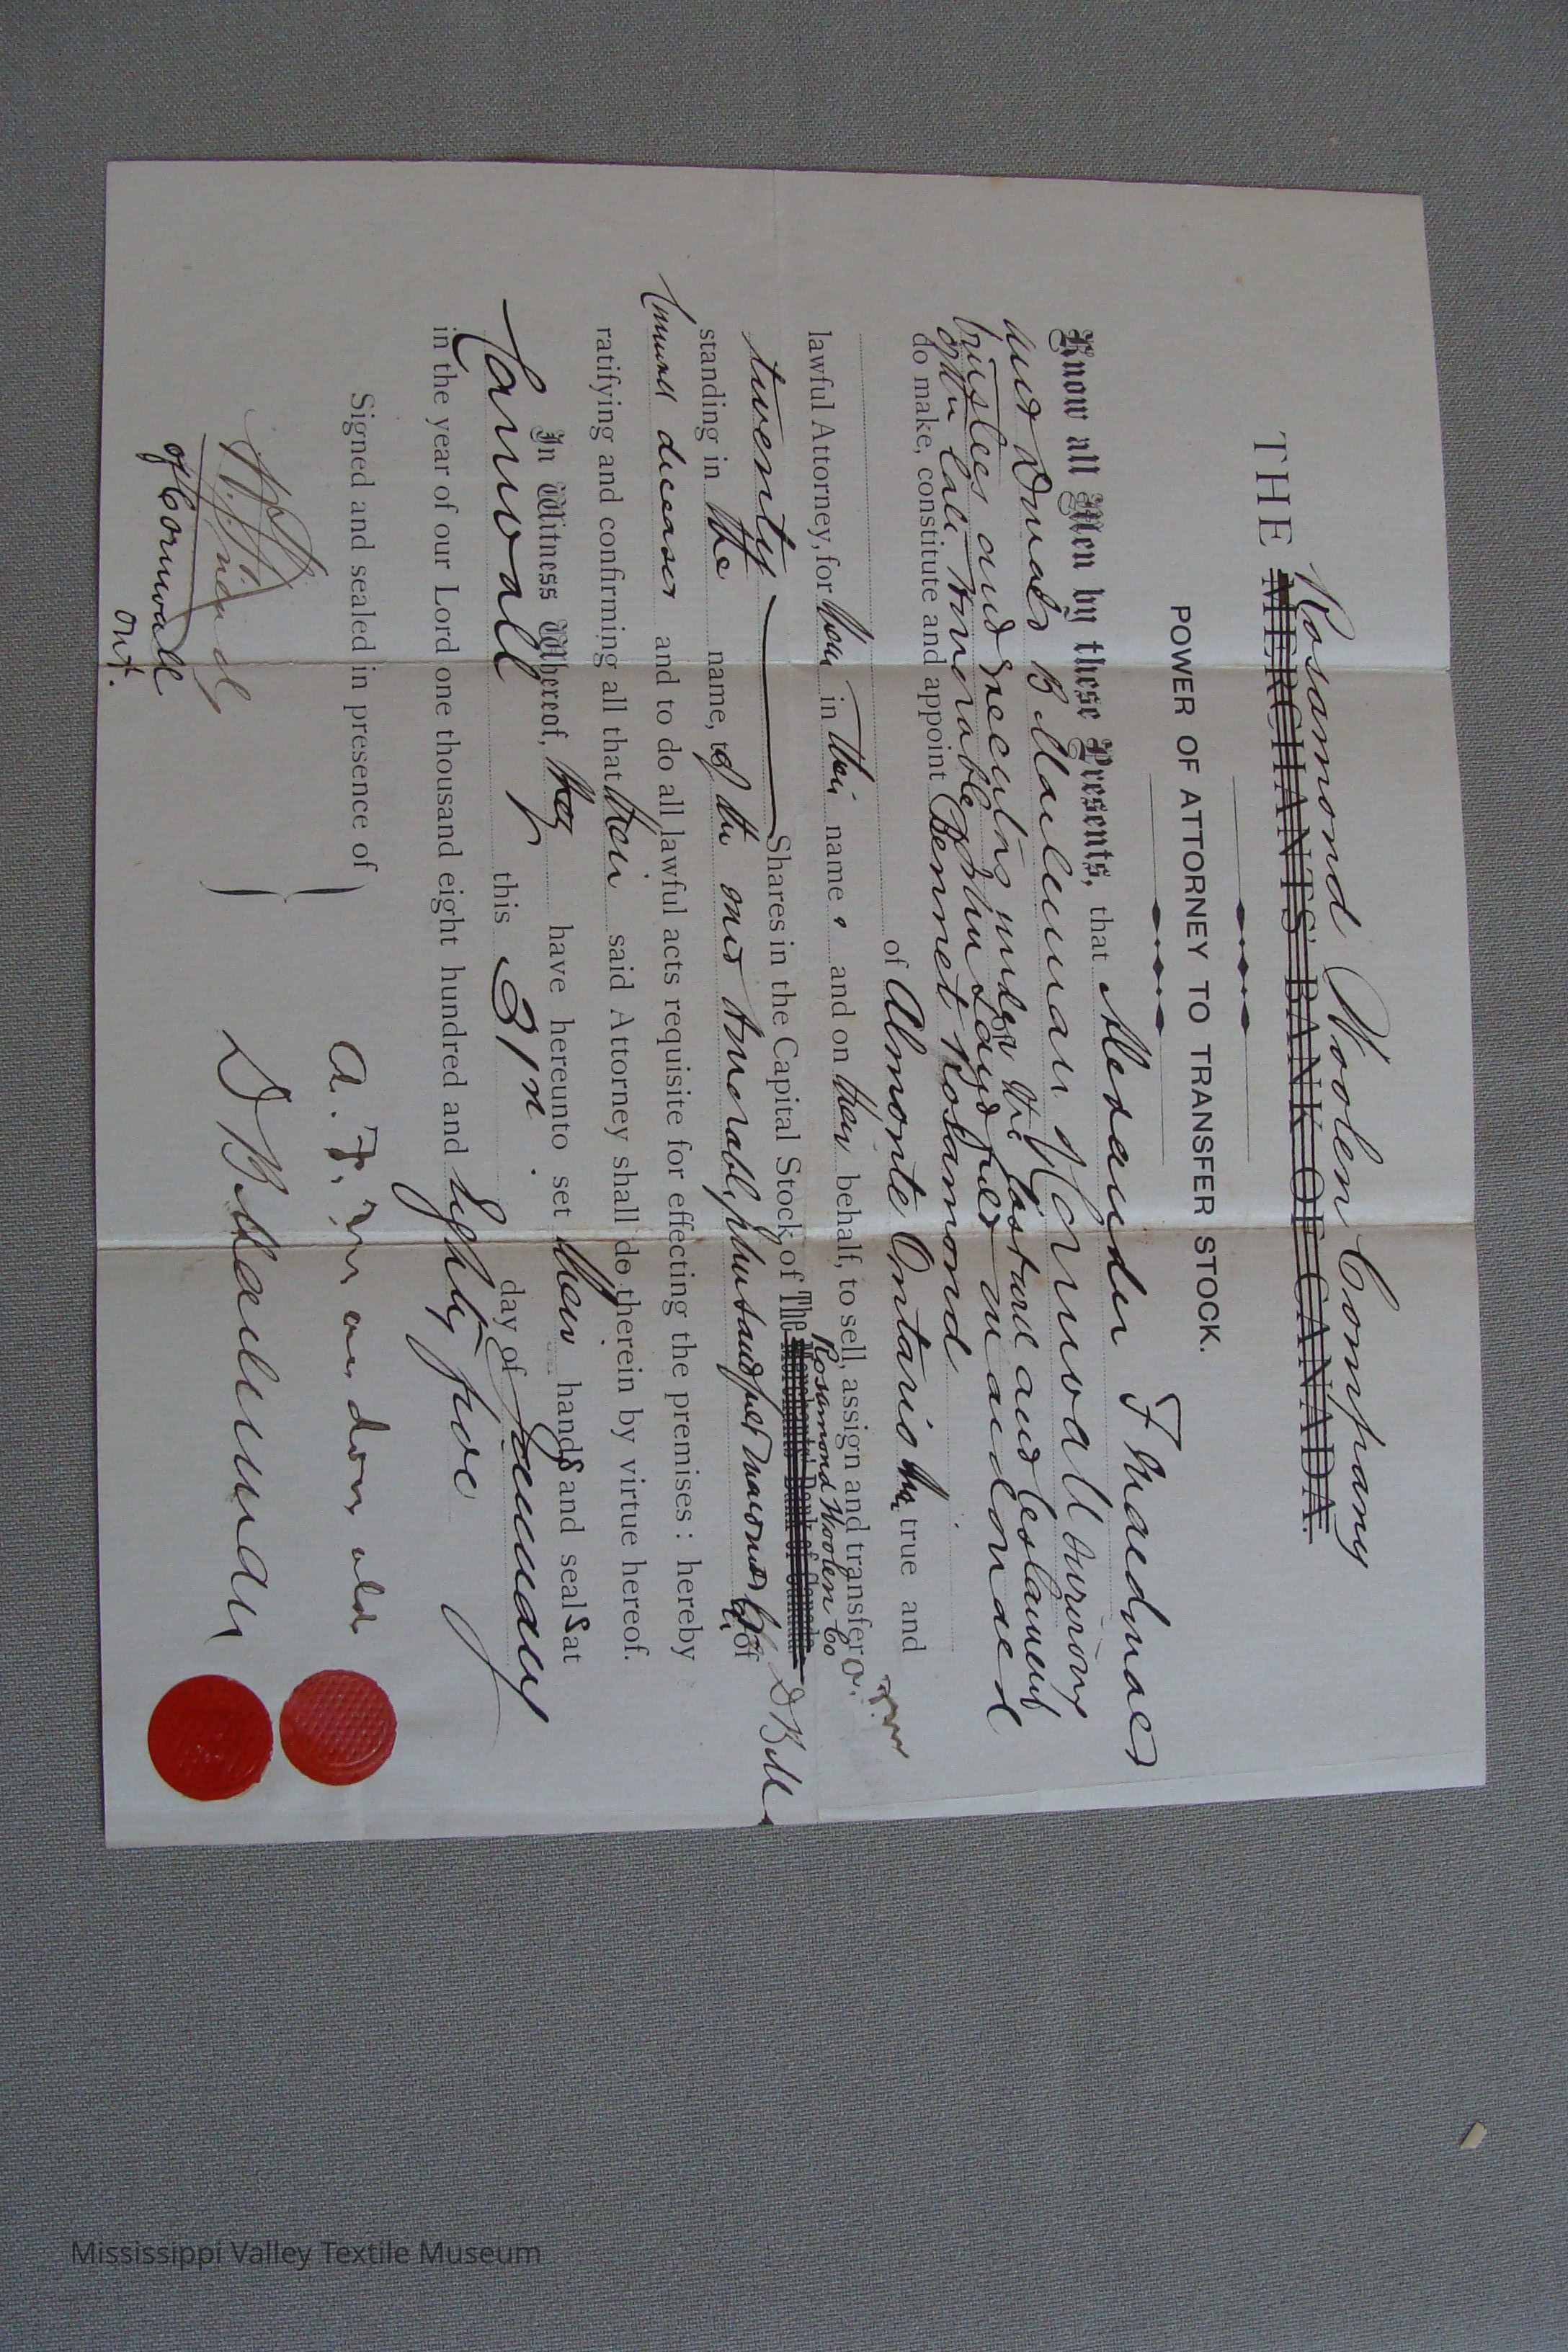 Rosamond Woolen Company
THE MERCHANTS BANK OF CANADA.
POWER OF ATTORNEY TO TRANSFER STOCK.
Know all Men by these Presents, that Alexander F
and Donald B Maclennan of Cornwall surviving
trustees and executors under the last will and testament
of the late Honorable John Sandfield Macdonald
do make, constitute and appoint Bennet Rosamond
of Almonte Ontario true and
lawful Attorney, for in their name and on their behalf, to sell, assign and transfer
Rosamond Woolen Co
twenty Shares in the Capital Stock of The Merchants Bank of Canada D B M
standing in the name, of the said Honorable John Sandfield Macdonald of
deceased and to do all lawful acts requisite for effecting the premises: hereby
ratifying and confirming all that their said Attorney shall do therein by virtue hereof.
In Witness Whereof, they have hereunto set their hands and seals at
Cornwall this day of January
in the year of our Lord one thousand eight hundred and Eighty five
Signed and sealed in presence of
of Cornwall
Ont.
D B Maclennan
Mississippi Valley Textile Museum